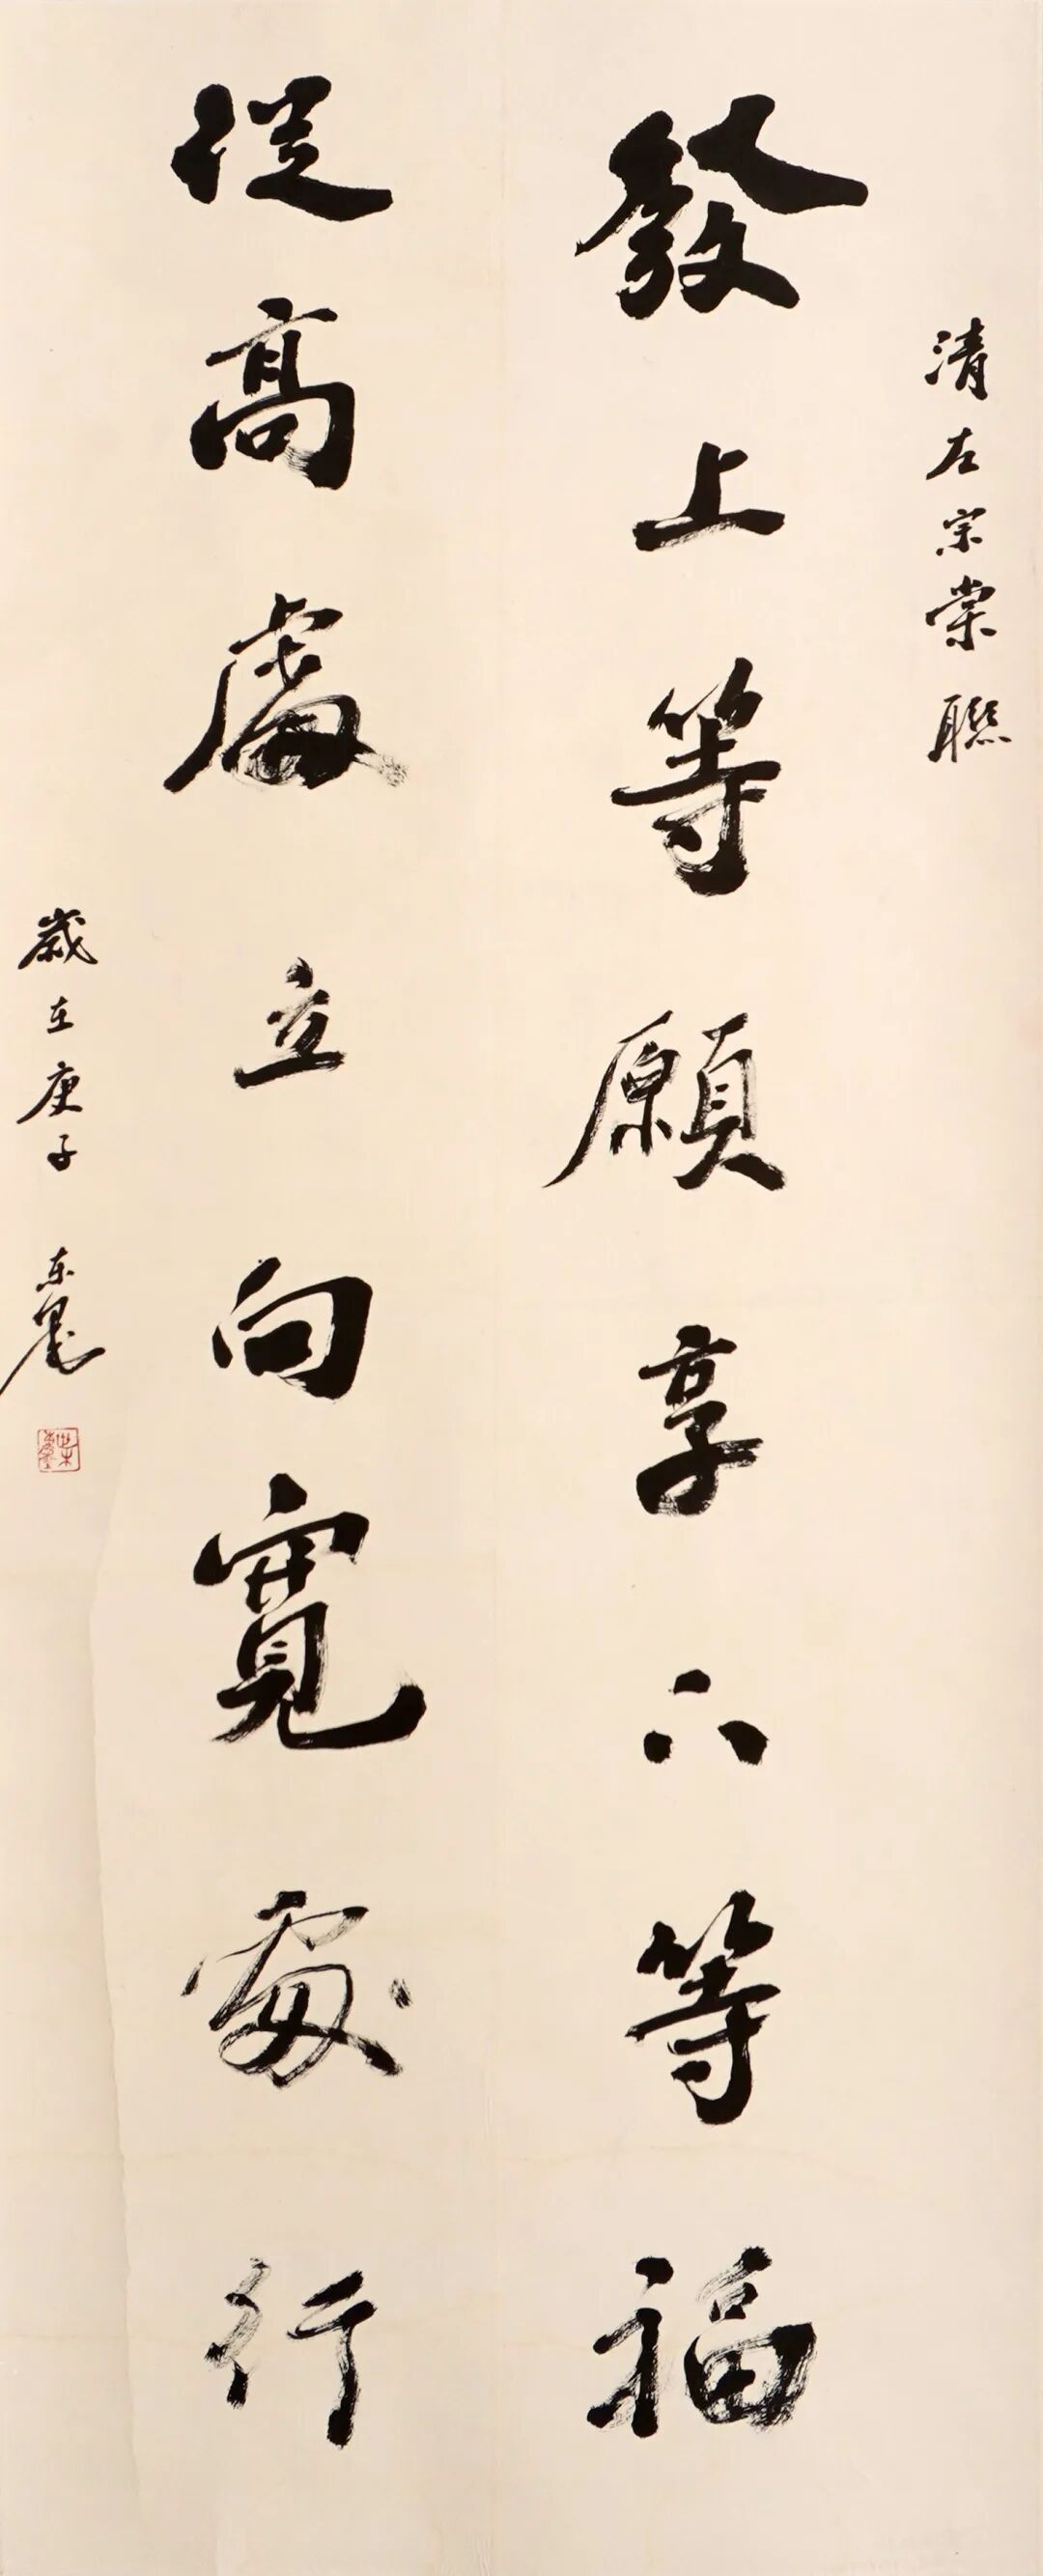 清左宗棠聯
發上等願享下等福
從高處立向寬處行
歲在庚子 東墨